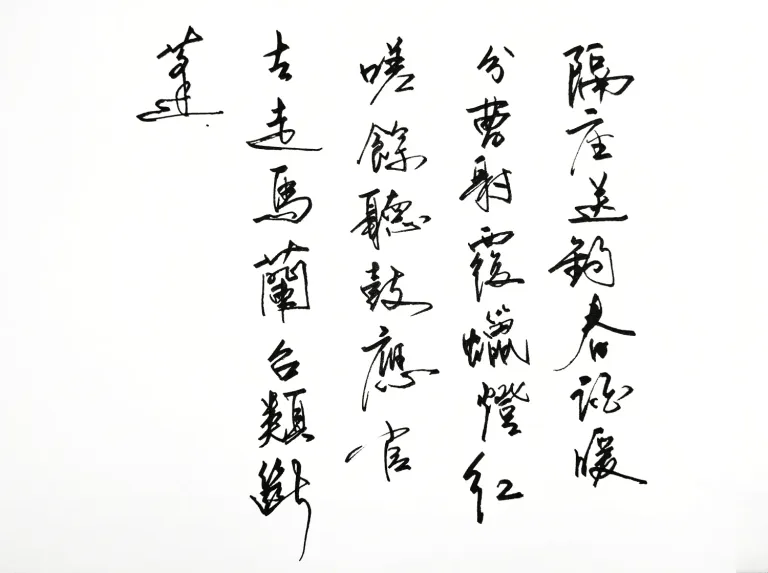 隔座送鈎春酒暖
分曹射覆蠟燈红
嗟餘聽鼓應官
去走馬蘭台類斷
蓬